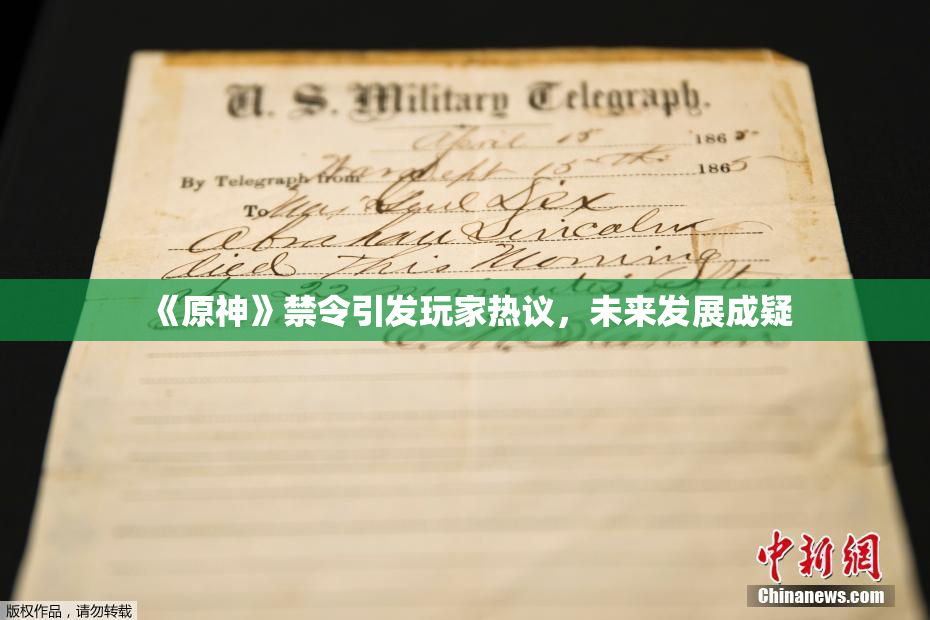 U. S. Military Telegraph.
April 15 1865
By Telegraph from War Dept 15th 1865
To Maj Genl Dix
Abraham Lincoln
died This Morning
at 22 minutes after
《原神》禁令引发玩家热议，未来发展成疑
中新网
Chinanews.com
版权作品，请勿转载